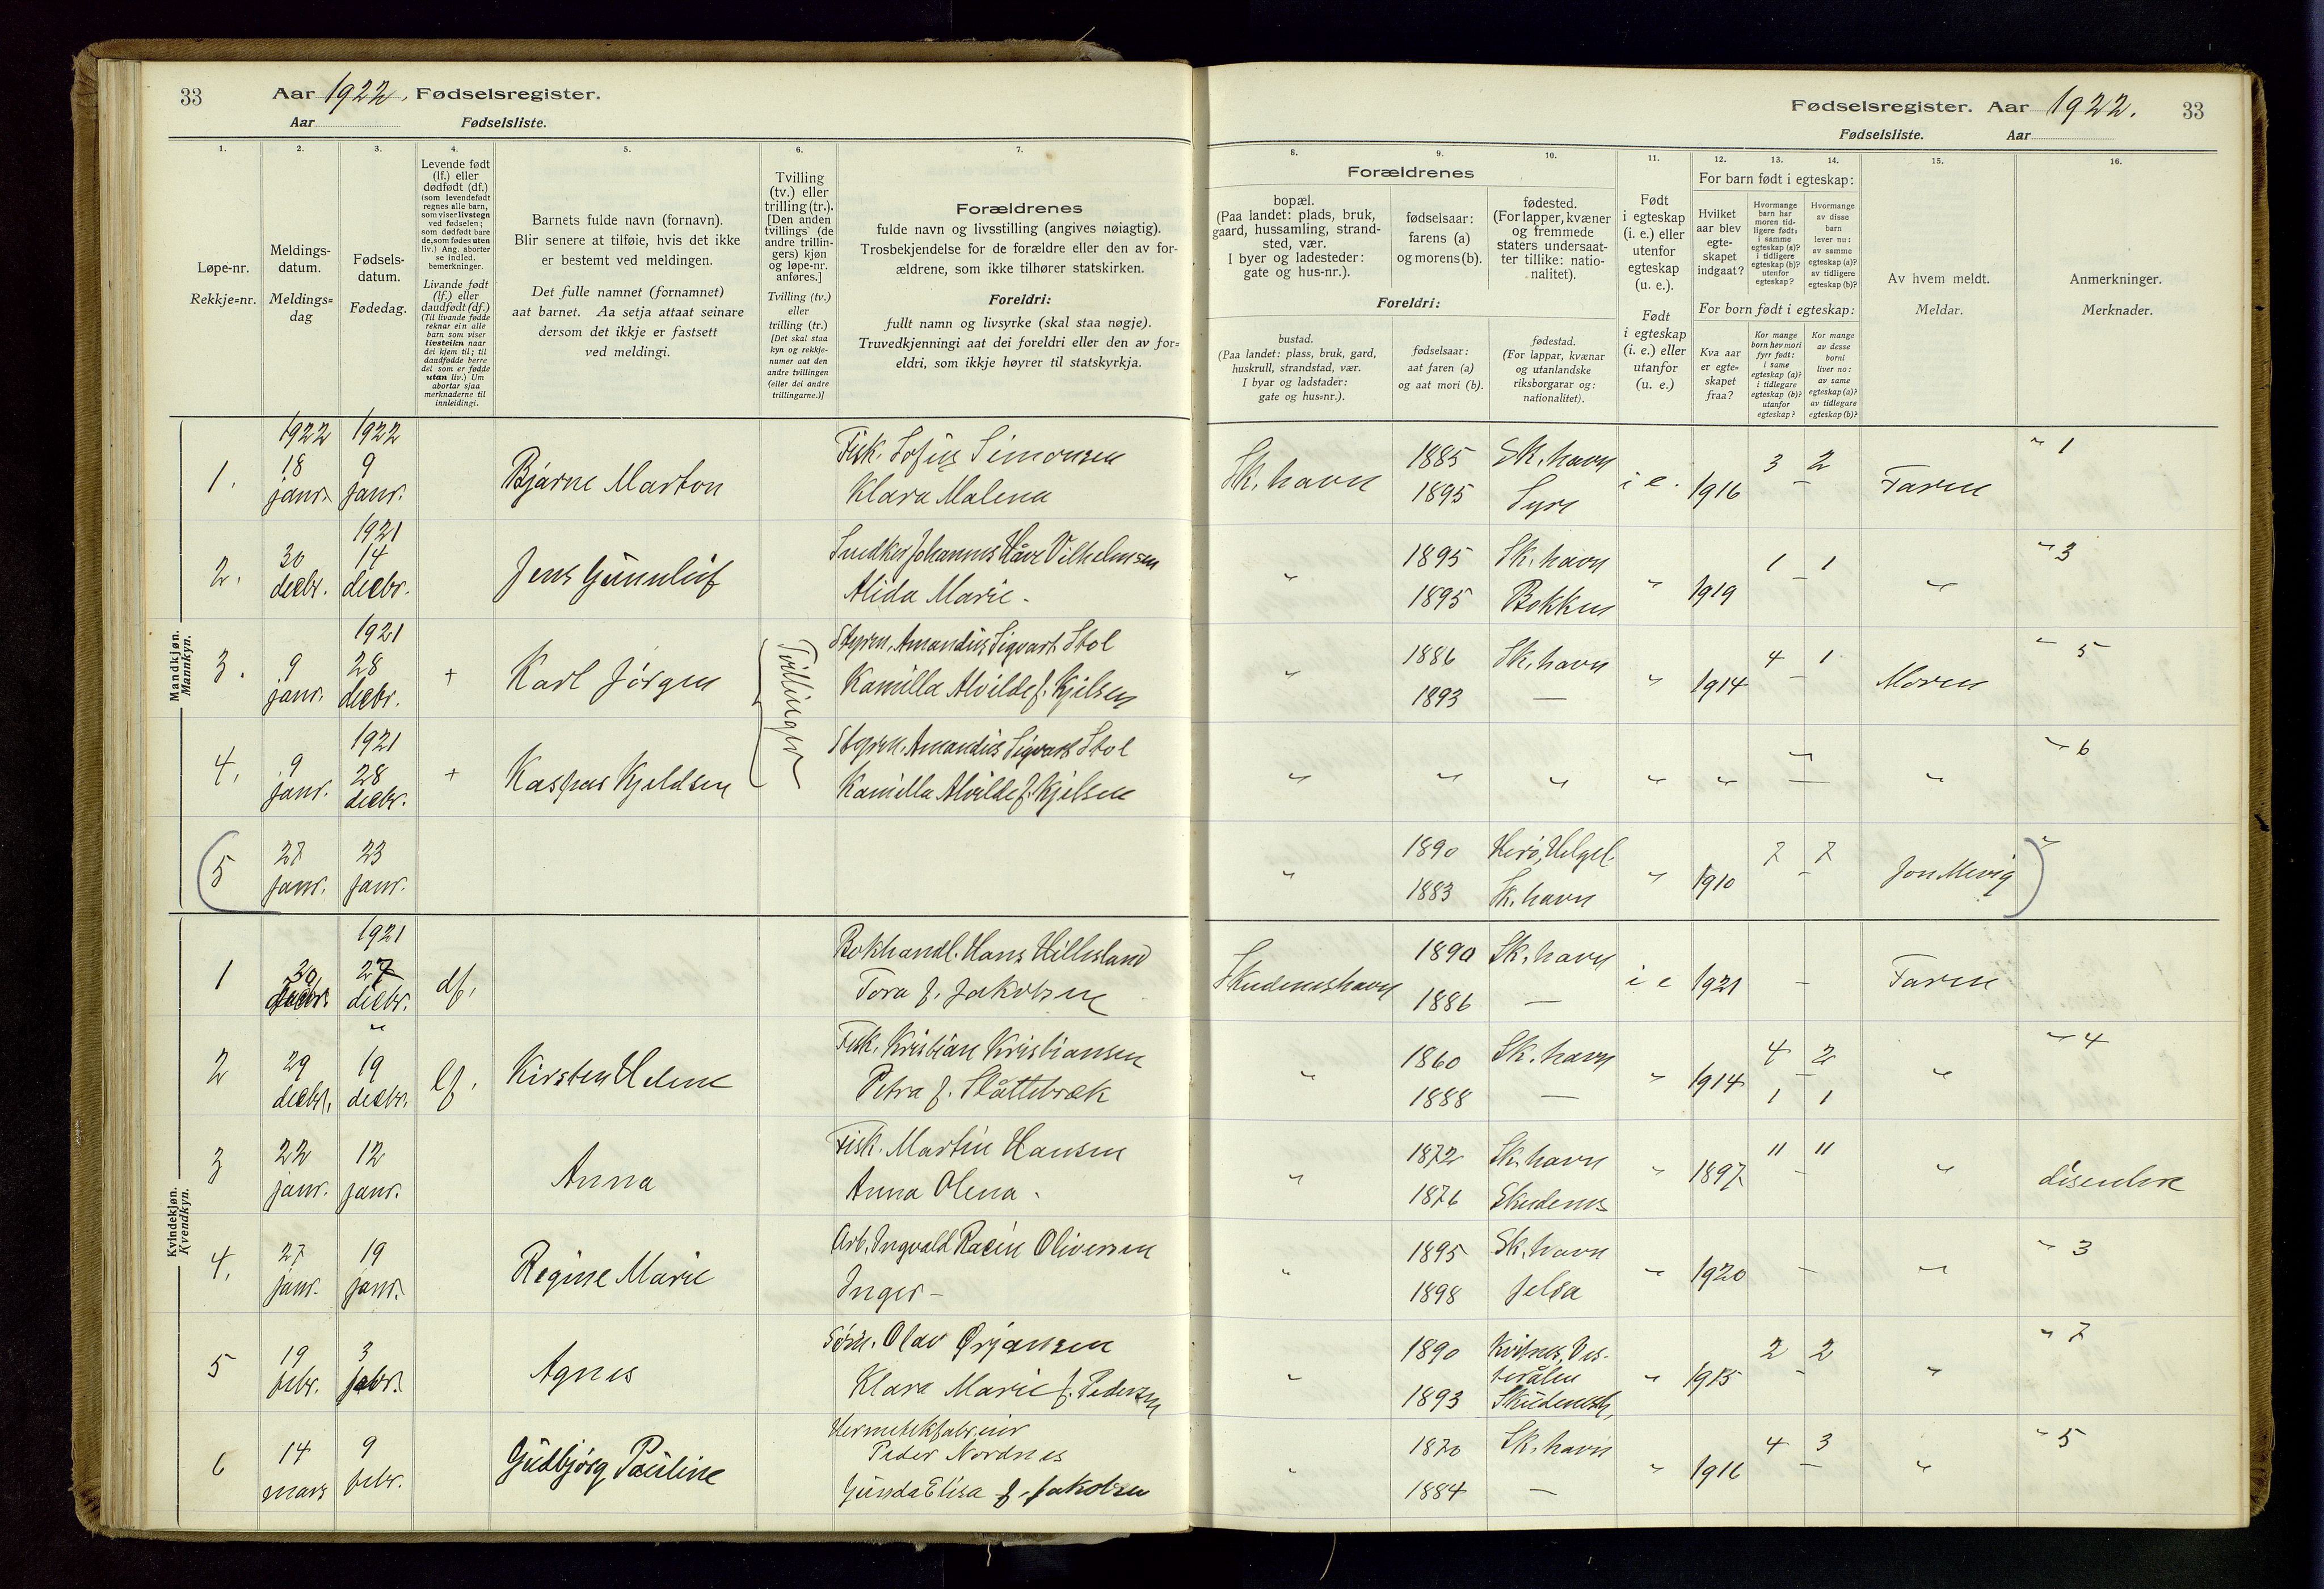 33
Aar 1922. Fødselsregister.
Aar
Fødselsliste.
1.
2.
3.
4.
5.
6.
7.
Løpe-nr.
Rekkje=nr.
Meldings-
datum.
Meldings=
dag
Fødsels-
datum.
Fødedag.
Levende født
(lf.) eller
dødfødt (df.)
(som levendefødt
regnes alle barn,
som viser livstegn
ved fødselen;
som dødfødt bare
de, som fødes uten
liv.) Ang. aborter
se indled.
bemerkninger.
Livande født
(lf.) eller
daudfødt (df.)
(Til livande fødde
reknar ein alle
barn som viser
livsteikn naar
dei kjem til; til
daudfødde berre
dei som er fødde
utan liv.) Um
abortar sjaa
merknaderne til
innleidingi.
Barnets fulde navn (fornavn).
Blir senere at tilføie, hvis det ikke
er bestemt ved meldingen.
Det fulle namnet (fornamnet)
aat barnet. Aa setja attaat seinare
dersom det ikkje er fastsett
ved meldingi.
Tvilling
(tv.) eller
trilling (tr.).
[Den anden
tvillings (de
andre trillin-
gers) kjøn
og løpe-nr.
anføres.]
Tvilling (tv.)
eller
trilling (tr.)
[Det skal staa
kyn og rekkje-
numer aat den
andre tvillingen
(eller dei andre
trillingarne.)]
Forældrenes
fulde navn og livsstilling (angives nøiagtig).
Trosbekjendelse for de forældre eller den av for-
ældrene, som ikke tilhører statskirken.
Foreldri:
fullt namn og livsyrke (skal staa nøgje).
Truvedkjenningi aat dei foreldri eller den av for=
eldri, som ikkje høyrer til statskyrkja.
Mandkjøn.
Mannkyn.
1922 1922
1. 18 janr. 9 janr. Bjarne Marton
Fisk. Sofus Simonsen
Klara Malena
1921
2. 30 decbr. 14 decbr. Jens Gunnleif
Snedker Johannes Håve Vilhelmsen
Alida Marie
1921
3. 9 janr. 28 decbr. + Karl Jørgen
Tvillinger
Styrm. Amandus Sigvart Stol
Kamilla Alvilde f. Kjelsen
1921
4. 9 janr. 28 decbr. + Kaspar Kjeldsen
Styrm. Amandus Sigvart Stol
Kamilla Alvilde f. Kjelsen
5 27 janr. 23 janr.
Kvindekjøn.
Kvendkyn.
1921
1 30 decbr. 27 decbr. df.
Bokhandl. Hans Hillesland
Tora f. Jakobsen
"
2 29 decbr. 19 decbr. lf. Kirsten Helene
Fisk. Kristian Kristiansen
Petra f. Slåttebræk
3 22 janr. 12 janr. Anna
Fisk. Martin Hansen
Anna Olena
4. 27 janr. 19 janr. Regine Marie
Arb. Ingvald Racin Oliversen
Inger
5 19 febr. 3 febr. Agnes
Olav Ørjansen
Klara Marie f. Pedersen
6 14 mars 9 febr. Gudbjørg Pauline
Peder Nordnes
Gunda Elisa f. Jakobsen
Fødselsregister. Aar 1922. 33
Fødselsliste.
Aar
8.
9.
10.
11.
12.
13.
14.
15.
16.
Forældrenes
bopæl.
(Paa landet: plads, bruk,
gaard, hussamling, strand-
sted, vær.
I byer og ladesteder:
gate og hus-nr.).
fødselsaar:
farens (a)
og morens (b).
fødested.
(For lapper, kvæner
og fremmede
staters undersaat-
ter tillike: natio-
nalitet).
Foreldri:
bustad.
(Paa landet: plass, bruk, gard,
huskrull, strandstad, vær.
I byar og ladstader:
gate og hus=nr.).
fødselsaar:
aat faren (a)
og aat mori (b).
fødestad.
(For lappar, kvænar
og utanlandske
riksborgarar og:
nationalitet).
Født
i egteskap
(i. e.) eller
utenfor
egteskap
(u. e.).
Født
i egteskap
(i. e.) eller
utanfor
(u. e.)
For barn født i egteskap:
Hvilket
aar blev
egte-
skapet
indgaat?
Hvormange
barn har
moren tid-
ligere født:
i samme
egteskap (a)?
i tidligere
egteskap (b)?
utenfor
egteskap?
Hvormange
av disse
barn
lever nu:
av samme
egteskap (a)?
av tidligere
egteskap (b)?
For barn født i egteskap:
Kva aar
er egte=
skapet
fraa?
Kor mange
born hev mori
fyrr født:
i same
egteskap (a)?
i tidlegare
egteskap (b)?
utanfor
egteskap?
Kor mange
av desse
borni
liver no:
av same
egteskap (a)?
av tidlegare
egteskap (b)?
Av hvem meldt.
Meldar.
Anmerkninger.
Merknader.
Sk.havn 1885 Sk.havn i e. 1916 3 2 Faren " 1
1895 Syre
" 1895 Sk.havn " 1919 1 1 " " 3
1895 Bokken
" 1886 Sk.havn " 1914 4 1 Moren " 5
1893 —
" " " " " " " " 6
" 1890 Herø, Helgel. " 1910 7 7 Jon Mevig "
1883 Sk.havn
Skudeneshavn 1890 Sk.havn i e 1921 – Faren
1886 —
" 1860 Sk.havn " 1914 4 2 " " 4
1888 — 1 1
" 1872 Sk.havn " 1897 11 11 " disentere
1876 Skudenes
" 1895 Sk.havn " 1920 – " " 3
1898 Jelsa
" 1890 Kvitnes, Ves-
terålen " 1915 2 2 " " 7
1893 Skudenesh.
" 1870 Sk.havn " 1916 4 3 " " 5
1884 —